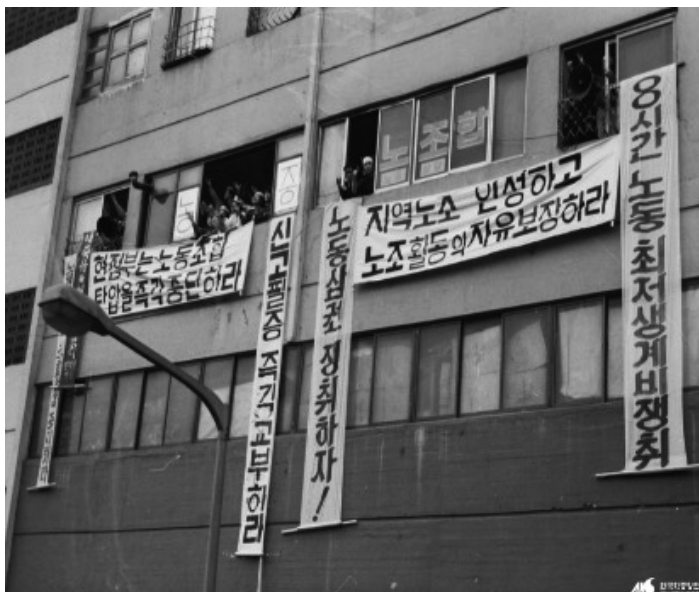 노조합
현정부는 노동조합
탄압을 즉각 중단하라
신고필증 즉각 교부하라
노동삼권 쟁취하자!
지역노조 인정하고
노조활동의 자유 보장하라
8시간 노동 최저생계비 쟁취